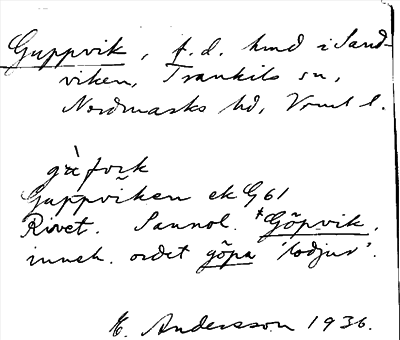 Guppvik, f.d. hmd i Sand-
viken, Trankils sn,
Nordmarks hd, Vrml l.
gàfvik
Guppviken ek G 61
Rivet. Sannol. *Göpvik,
inneh. ordet göpa 'lodjur'.
E. Andersson 1936.